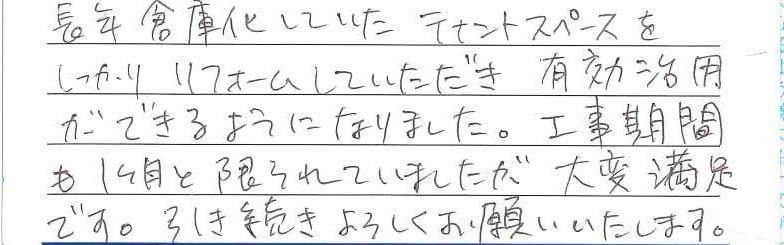 長年倉庫化していた テナントスペースを
しっかり リフォームしていただき 有効活用
ができるようになりました。工事期間
も1ヶ月と限られていましたが 大変満足
です。引き続きよろしくお願いいたします。